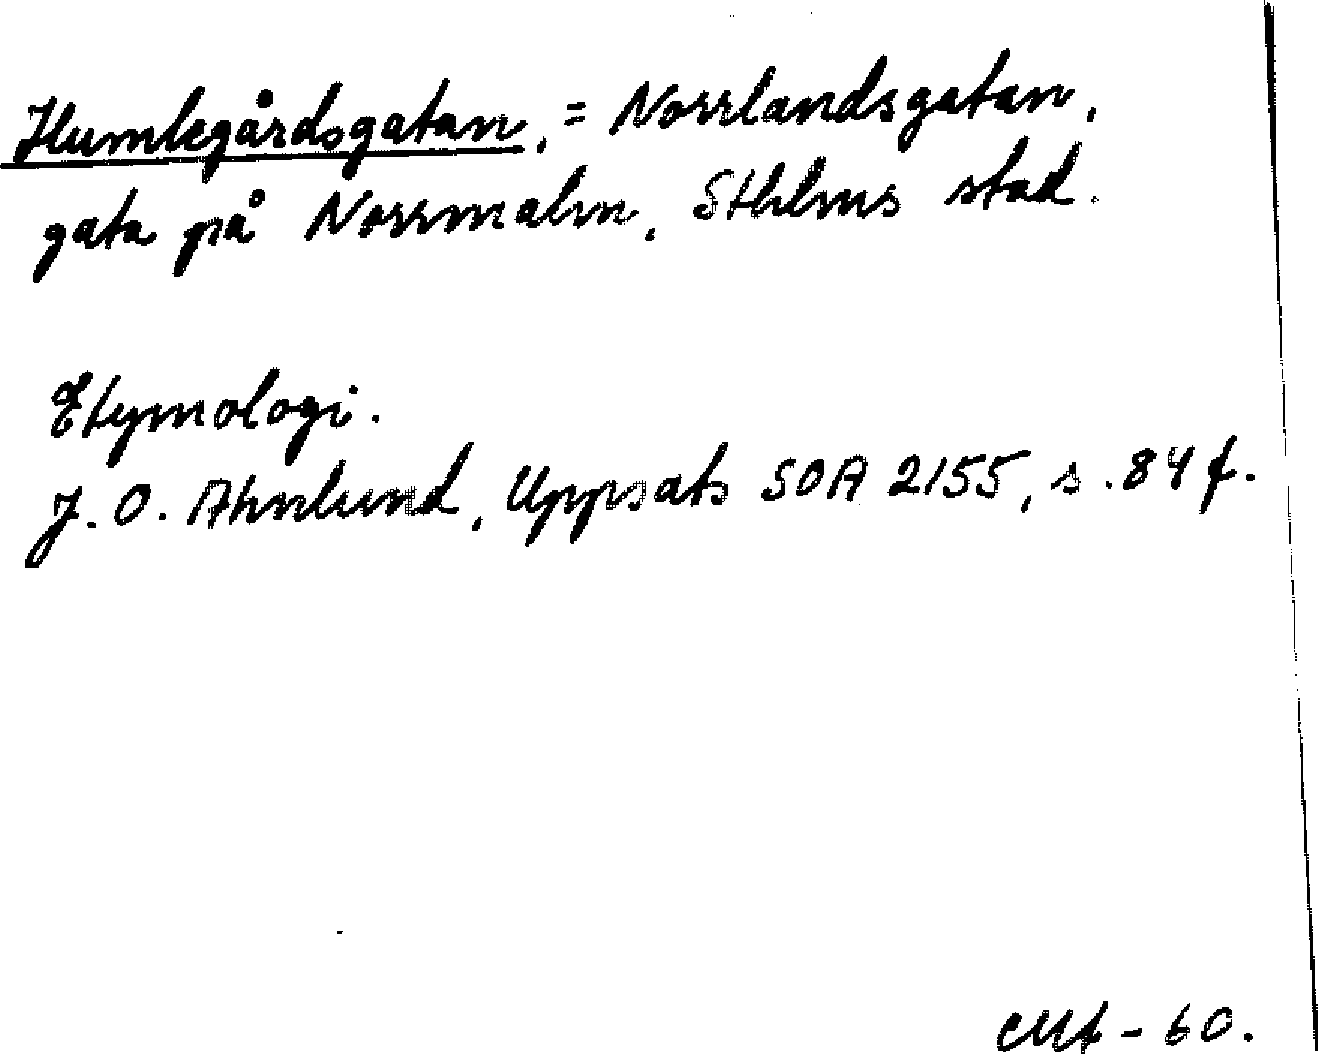 Humlegårdsgatan, = Norrlandsgatan,
gata på Norrmalm, Sthlms stad.
Etymologi.
J. O. Ahnlund, Uppsats SOA 2155, s. 84 f.
- 60.